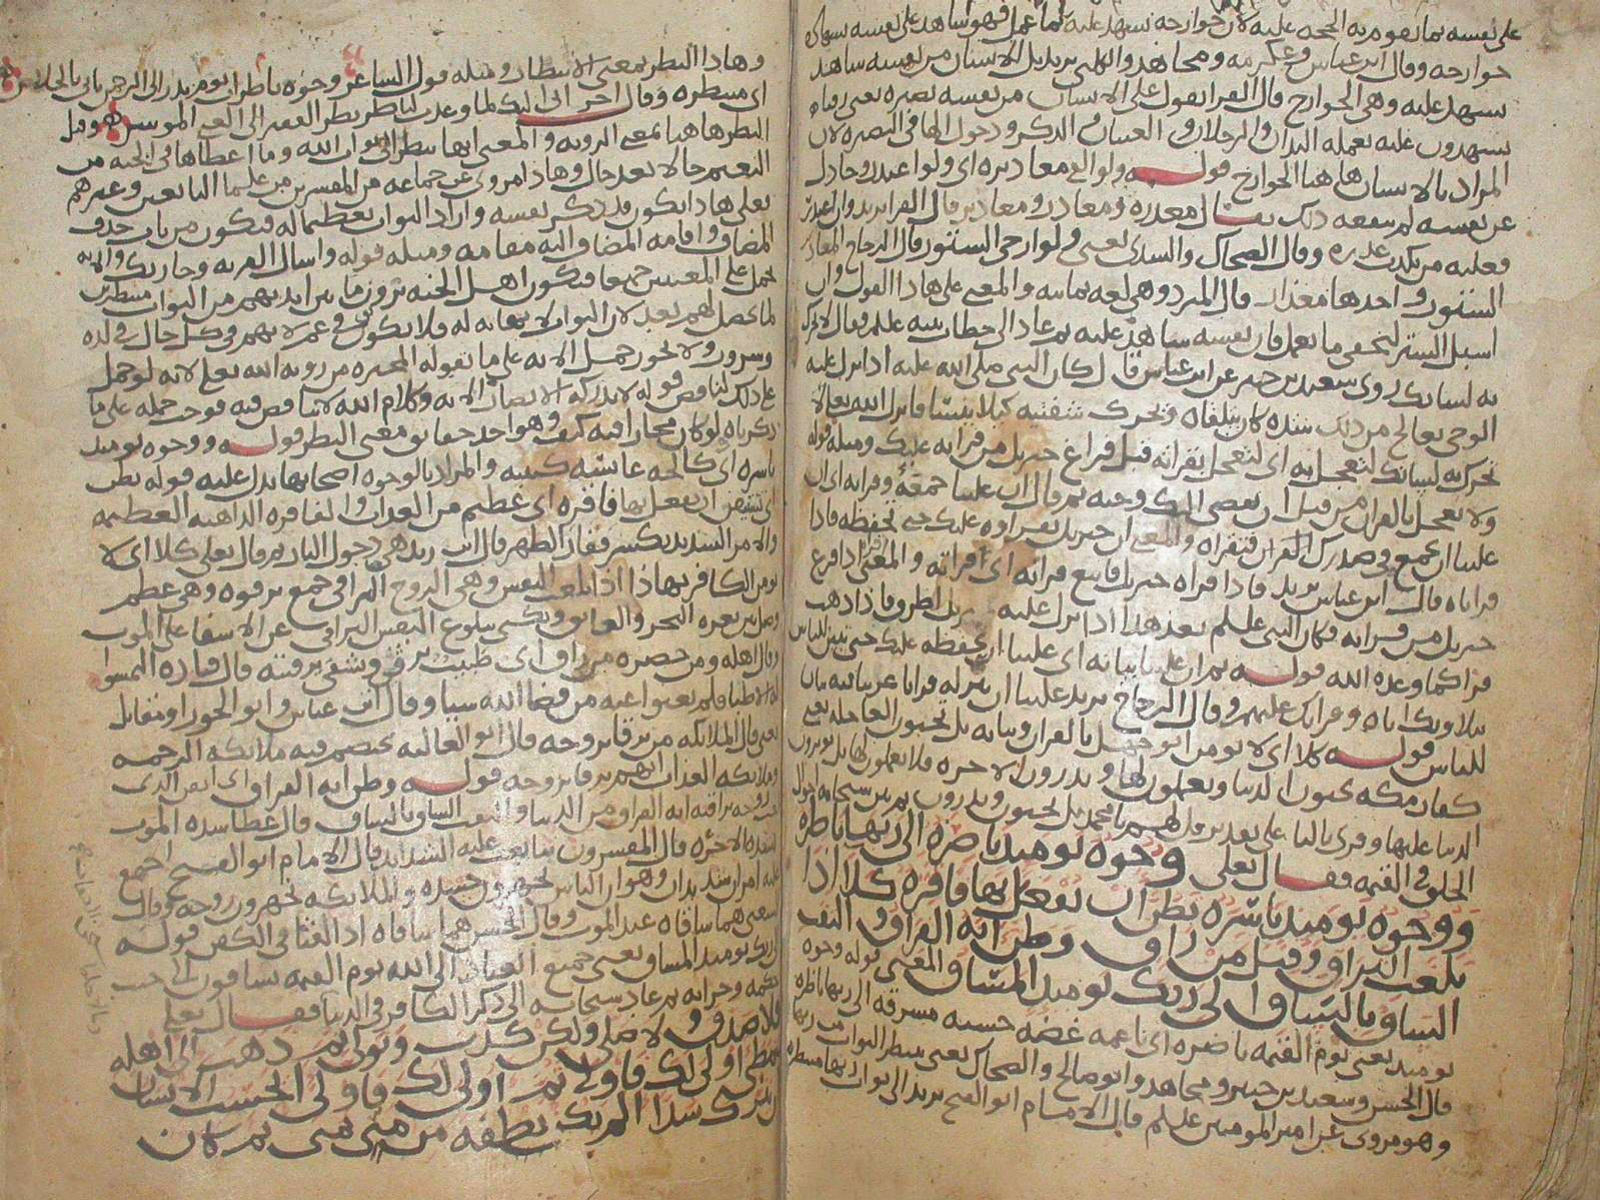 على نفسه بما تقوم به الحجه عليه لان جوارحه تشهد عليه بما عمل فهو شاهد على نفسه بشهاده
جوارحه وقال ابن عباس وعكرمه ومجاهد والكلبي يريد بل الانسان من نفسه شاهد
يشهد عليه وهي الجوارح قال الفرا يقول على الانسان من نفسه بصيره يعني رقباء
يشهدون عليه بعمله اليدان والرجلان والعينان والذكر ودخول الها في البصيره لان
المراد بالانسان هاهنا الجوارح قوله ولو القى معاذيره اي ولو اعتذر وجادل
عن نفسه لم ينفعه ذلك يقال معذره ومعاذر ومعاذير قال الفرا يريد وان اعتذر
فعليه من يكذب عذره وقال الضحاك والسدي يعني ولو ارخى الستور قال الزجاج المعاذر
الستور واحدها معذار قال المبرد وهي لغه يمانيه والمعنى على هذا القول وان
اسبل الستر ليخفي ما يعمل فان نفسه شاهده عليه ثم عاد الى خطاب نبيه علم فقال لا تحرك
به لسانك روى سعيد بن جبير عن ابن عباس قال كان النبي صلى الله عليه اذا نزل عليه
الوحي يعالج من ذلك شده كان يتلقاه ويحرك شفتيه كيلا ينساه فانزل الله تعالى لا
تحرك به لسانك لتعجل به اي لتعجل بقراته قبل فراغ جبريل من قراته عليك ومثله قوله
ولا تعجل بالقران من قبل ان يقضى اليك وحيه ثم قال ان علينا جمعه وقرانه اي ان
علينا ان نجمع في صدرك القران فتقراه والمعنى ان جبريل يقراوه عليك حتى تحفظه فاذا
قراناه قال ابن عباس يريد فاذا قراه جبريل فاتبع قرانه اي اقراته والمعنى اذا فرغ
جبريل من قراته فكان النبي علم بعد هذا اذا نزل عليه جبريل اطرق فاذا ذهب
قراه كما وعده الله قوله ثم ان علينا بيانه اي علينا ان تحفظه عليك حتى تبين للناس
بتلاوتك اياه وقراتك عليهم وقال الزجاج يريد علينا ان ننزله قرانا عربيا فيه بيان
للناس قوله كلا اي لا يومن ابو جهل بالقران وبيانه بل تحبون العاجله يعني
كفار مكه يحبون الدنيا ويعملون لها ويذرون الاخره فلا يعملون لها بل يوثرون
الدنيا عليها وقرئ باليا على تقدير قل لهم يا محمد بل تحبون وتذرون ثم بين سبحانه احوال
الخلق في القيمه فقال تعالى وجوه يومئذ ناضره الى ربها ناظره
ووجوه يومئذ باسره تظن ان يفعل بها فاقره كلا اذا
بلغت التراقي وقيل من راق وظن انه الفراق والتفت
الساق بالساق الى ربك يومئذ المساق المعنى قوله وجوه
يومئذ يعني يوم القيمه ناضره اي ناعمه غضه حسنه مشرقه الى ربها ناظره
قال الحسن وسعيد بن جبير ومجاهد وابو صالح والضحاك يعني تنتظر الثواب من ربها
وهو مروي عن امير المومنين علم قال الامام ابو الفتح يريد الى ثواب ربها منتظره
وهذا النظر بمعنى الانتظار ومثله قول الشاعر وجوه ناظرات يوم بدر الى الرحمن ياتي بالخلاص
اي منتظره وقال اخر اني اليك لما وعدت لناظر نظر الفقير الى الغني الموسر وقيل
النظر هاهنا بمعنى الرويه والمعنى انها تنظر الى ثواب الله وما اعطاها في الجنه من
النعيم حالا بعد حال وهذا مروي عن جماعه من المفسرين من علما التابعين وغيرهم
فعلى هذا يكون قد ذكر نفسه واراد الثواب تعظيما له فيكون من باب حذف
المضاف واقامه المضاف اليه مقامه ومثله قوله واسال القريه وجا ربك والايه
تحمل على المعنيين جميعا فيكون اهل الجنه يرون ما يزايد بهم من الثواب منتظرين
لما يحصل لهم بعد لان الثواب لا نهايه له فلا يكونون في غم لانهم في كل حال في لذه
وسرور ولا يجوز حمل الايه على ما تقوله المجبره من رويه الله تعلى لانه لو حمل
على ذلك لناقض قوله لا تدركه الابصار الايه وكلام الله لا يتناقض فيه فوجب حمله على ما
ذكرناه لو كان مجازا فيه كيف وهو احد حقايق معنى النظر قوله ووجوه يومئذ
باسره اي كالحه عابسه كئيبه والمراد بالوجوه اصحابها يدل عليه قوله تظن
اي تستيقن ان يفعل بها فاقره اي عظيم من العذاب والفاقره الداهيه العظيمه
والامر الشديد يكسر فقار الظهر قال ابن زيد هي دخول النار ثم قال تعلى كلا اي لا
يومن الكافر بهذا اذا بلغت النفس وهي الروح التراقي جمع ترقوه وهي عظم
وصل بين ثغره النحر والعاتق ويكنى ببلوغ النفس التراقي عن الاشفا على الموت
وقال اهله ومن حضره من راق اي طبيب يرقي ويشفي برقيته قال قتاده التمسوا
له الاطبا فلم يغنوا عنه من قضا الله شيا وقال ابن عباس وابو الجوزا ومقاتل
يعني قال الملائكه من يرقا بروحه قال ابو العاليه يختصم فيه ملائكه الرحمه
وملائكه العذاب ايهم يرقا بروحه قوله وظن انه الفراق اي ايقن الذي
بلغت روحه تراقيه انه الفراق من الدنيا والتفت الساق بالساق قال عطا شده الموت
بشده الاخره قال المفسرون تتابعت عليه الشدايد قال الامام ابو الفتح اجتمع
عليه امران شديدان وهو ان الناس يجهزون جسده والملائكه يجهزون روحه وقال
الشعبي هما ساقاه عند الموت وقال الحسن هما ساقاه اذا التفتا في الكفن قوله
الى ربك يومئذ المساق يعني جميع العباد الى الله يوم القيمه يساقون الى حيث
حكمه وجزائه ثم عاد سبحانه الى ذكر الكافر في الدنيا فقال تعلى
فلا صدق ولا صلى ولكن كذب وتولى ثم ذهب الى اهله
يتمطى اولى لك فاولى ثم اولى لك فاولى ايحسب الانسان
ان يترك سدا الم يك نطفه من مني تمنى ثم كان